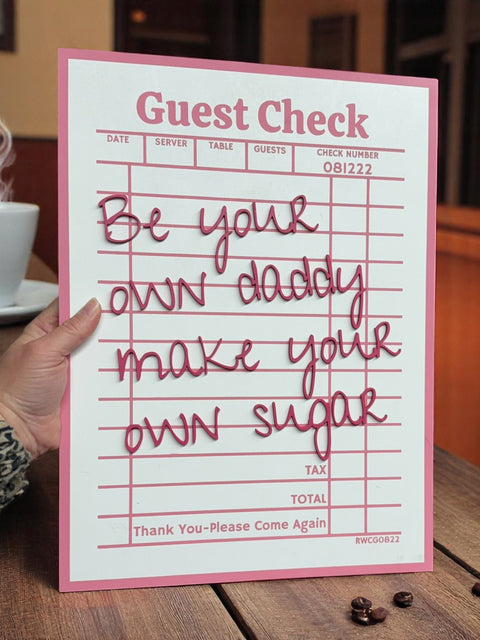 Guest Check
DATE SERVER TABLE GUESTS CHECK NUMBER
081222
Be your
own daddy
make your
own sugar
TAX
TOTAL
Thank You-Please Come Again
RWCG0822